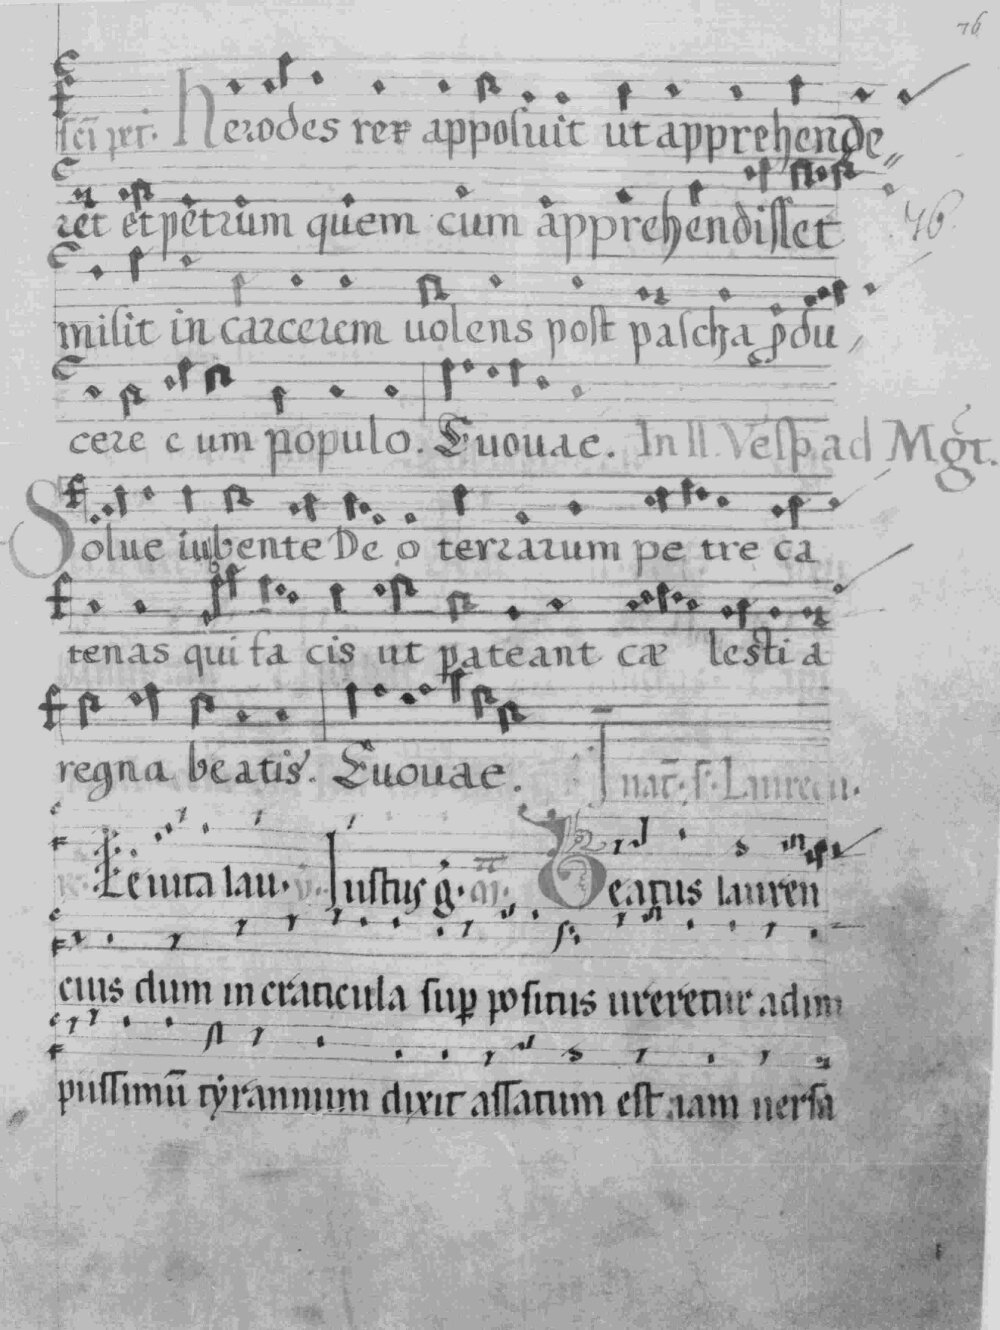 76
sc̄i pet. Herodes rex apposuit ut apprehende
ret et petrum quem cum apprehendisset
76
misit in carcerem uolens post pascha ꝓdu
cere cum populo. Euouae. In II Vesp. ad Mgt.
Solue iubente Deo terrarum petre ca
tenas qui facis ut pateant cælestia
regna beatis. Euouae.
In nat̄. s. Laurecii.
Leuita lau. v. Iustus g. Beatus lauren
cius dum in craticula sup positus ureretur ad im
piissimū tyrannum dixit assatum est iam uersa